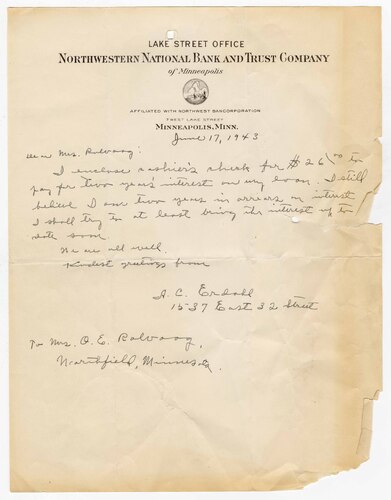 LAKE STREET OFFICE
NORTHWESTERN NATIONAL BANK AND TRUST COMPANY
of Minneapolis
AFFILIATED WITH NORTHWEST BANCORPORATION
LAKE STREET
MINNEAPOLIS, MINN.
June 17, 1943
Dear Mrs. Rolvaag:
I enclose cashier's check for $26.00 to
pay for two year's interest on my loan. I still
believe I am two years in arrears in interest
I shall try to at least bring the interest up to
date soon.
We are all well
Kindest greetings from
A. C. Erdahl
1537 East 32 Street
To Mrs. O. E. Rolvaag,
Northfield, Minnesota